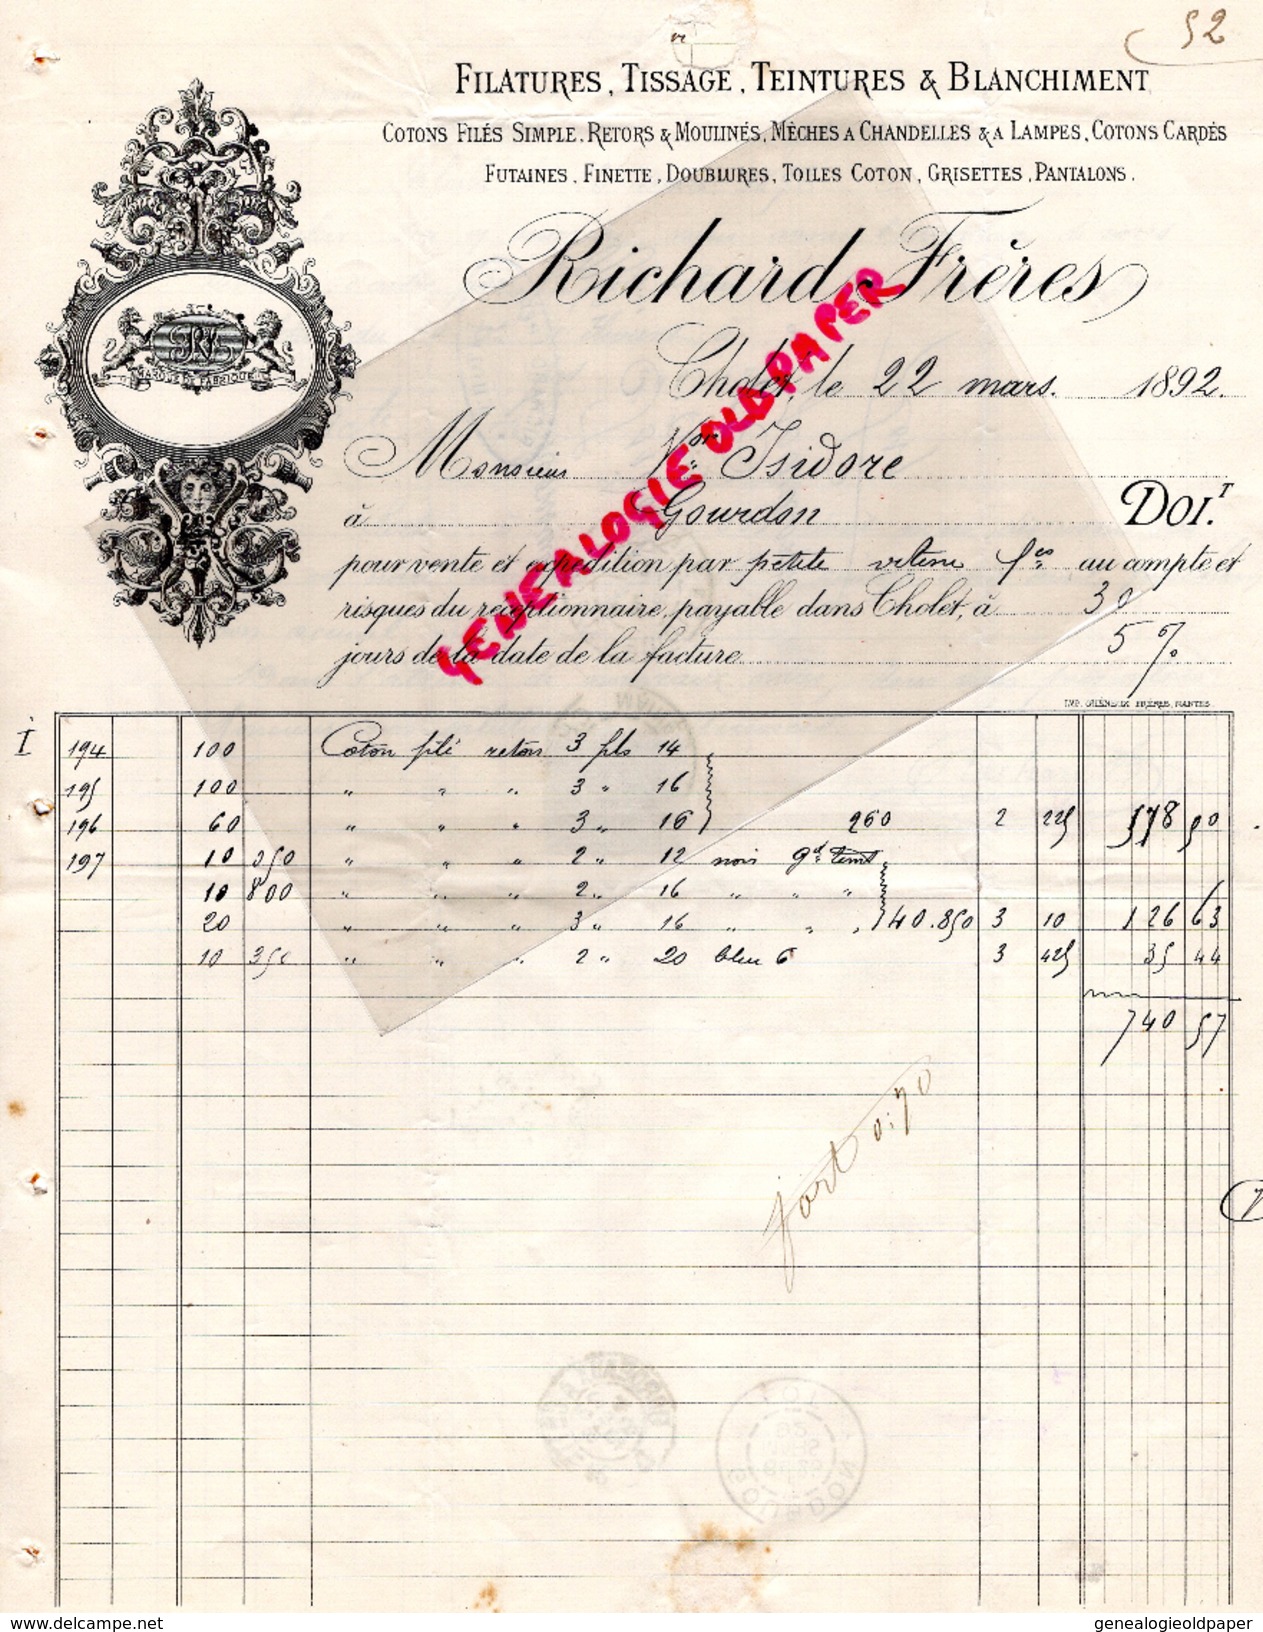 52
FILATURES, TISSAGE, TEINTURES & BLANCHIMENT
COTONS FILÉS SIMPLE, RETORS & MOULINÉS, MÈCHES A CHANDELLES & A LAMPES, COTONS CARDÉS
FUTAINES, FINETTE, DOUBLURES, TOILES COTON, GRISETTES, PANTALONS.
Richard Frères
MARQUE DE FABRIQUE
Cholet, le 22 mars. 1892.
Monsieur Vor Isidore
à Gourdon DOIT.
pour vente et expédition par petite vitesse fes au compte et
risques du réceptionnaire, payable dans Cholet, à 30
jours de la date de la facture 5 %
GENEALOGIE OLD PAPER
IMP. GRENEUX FRÈRES, NANTES
I 194 100 Coton filé retors 3 fils 14
195 100 " " " 3 " 16
196 60 " " " 3 " 16 260 2 225 578 50
197 10 050 " " " 2 " 12 noir gd teint
10 800 " " " 2 " 16 " " "
20 " " " 3 " 16 " " " 40.850 3 10 126 63
10 350 " " " 2 " 20 bleu 6 3 425 35 44
740 57
port 0.70
delcampe.net
genealogieoldpaper